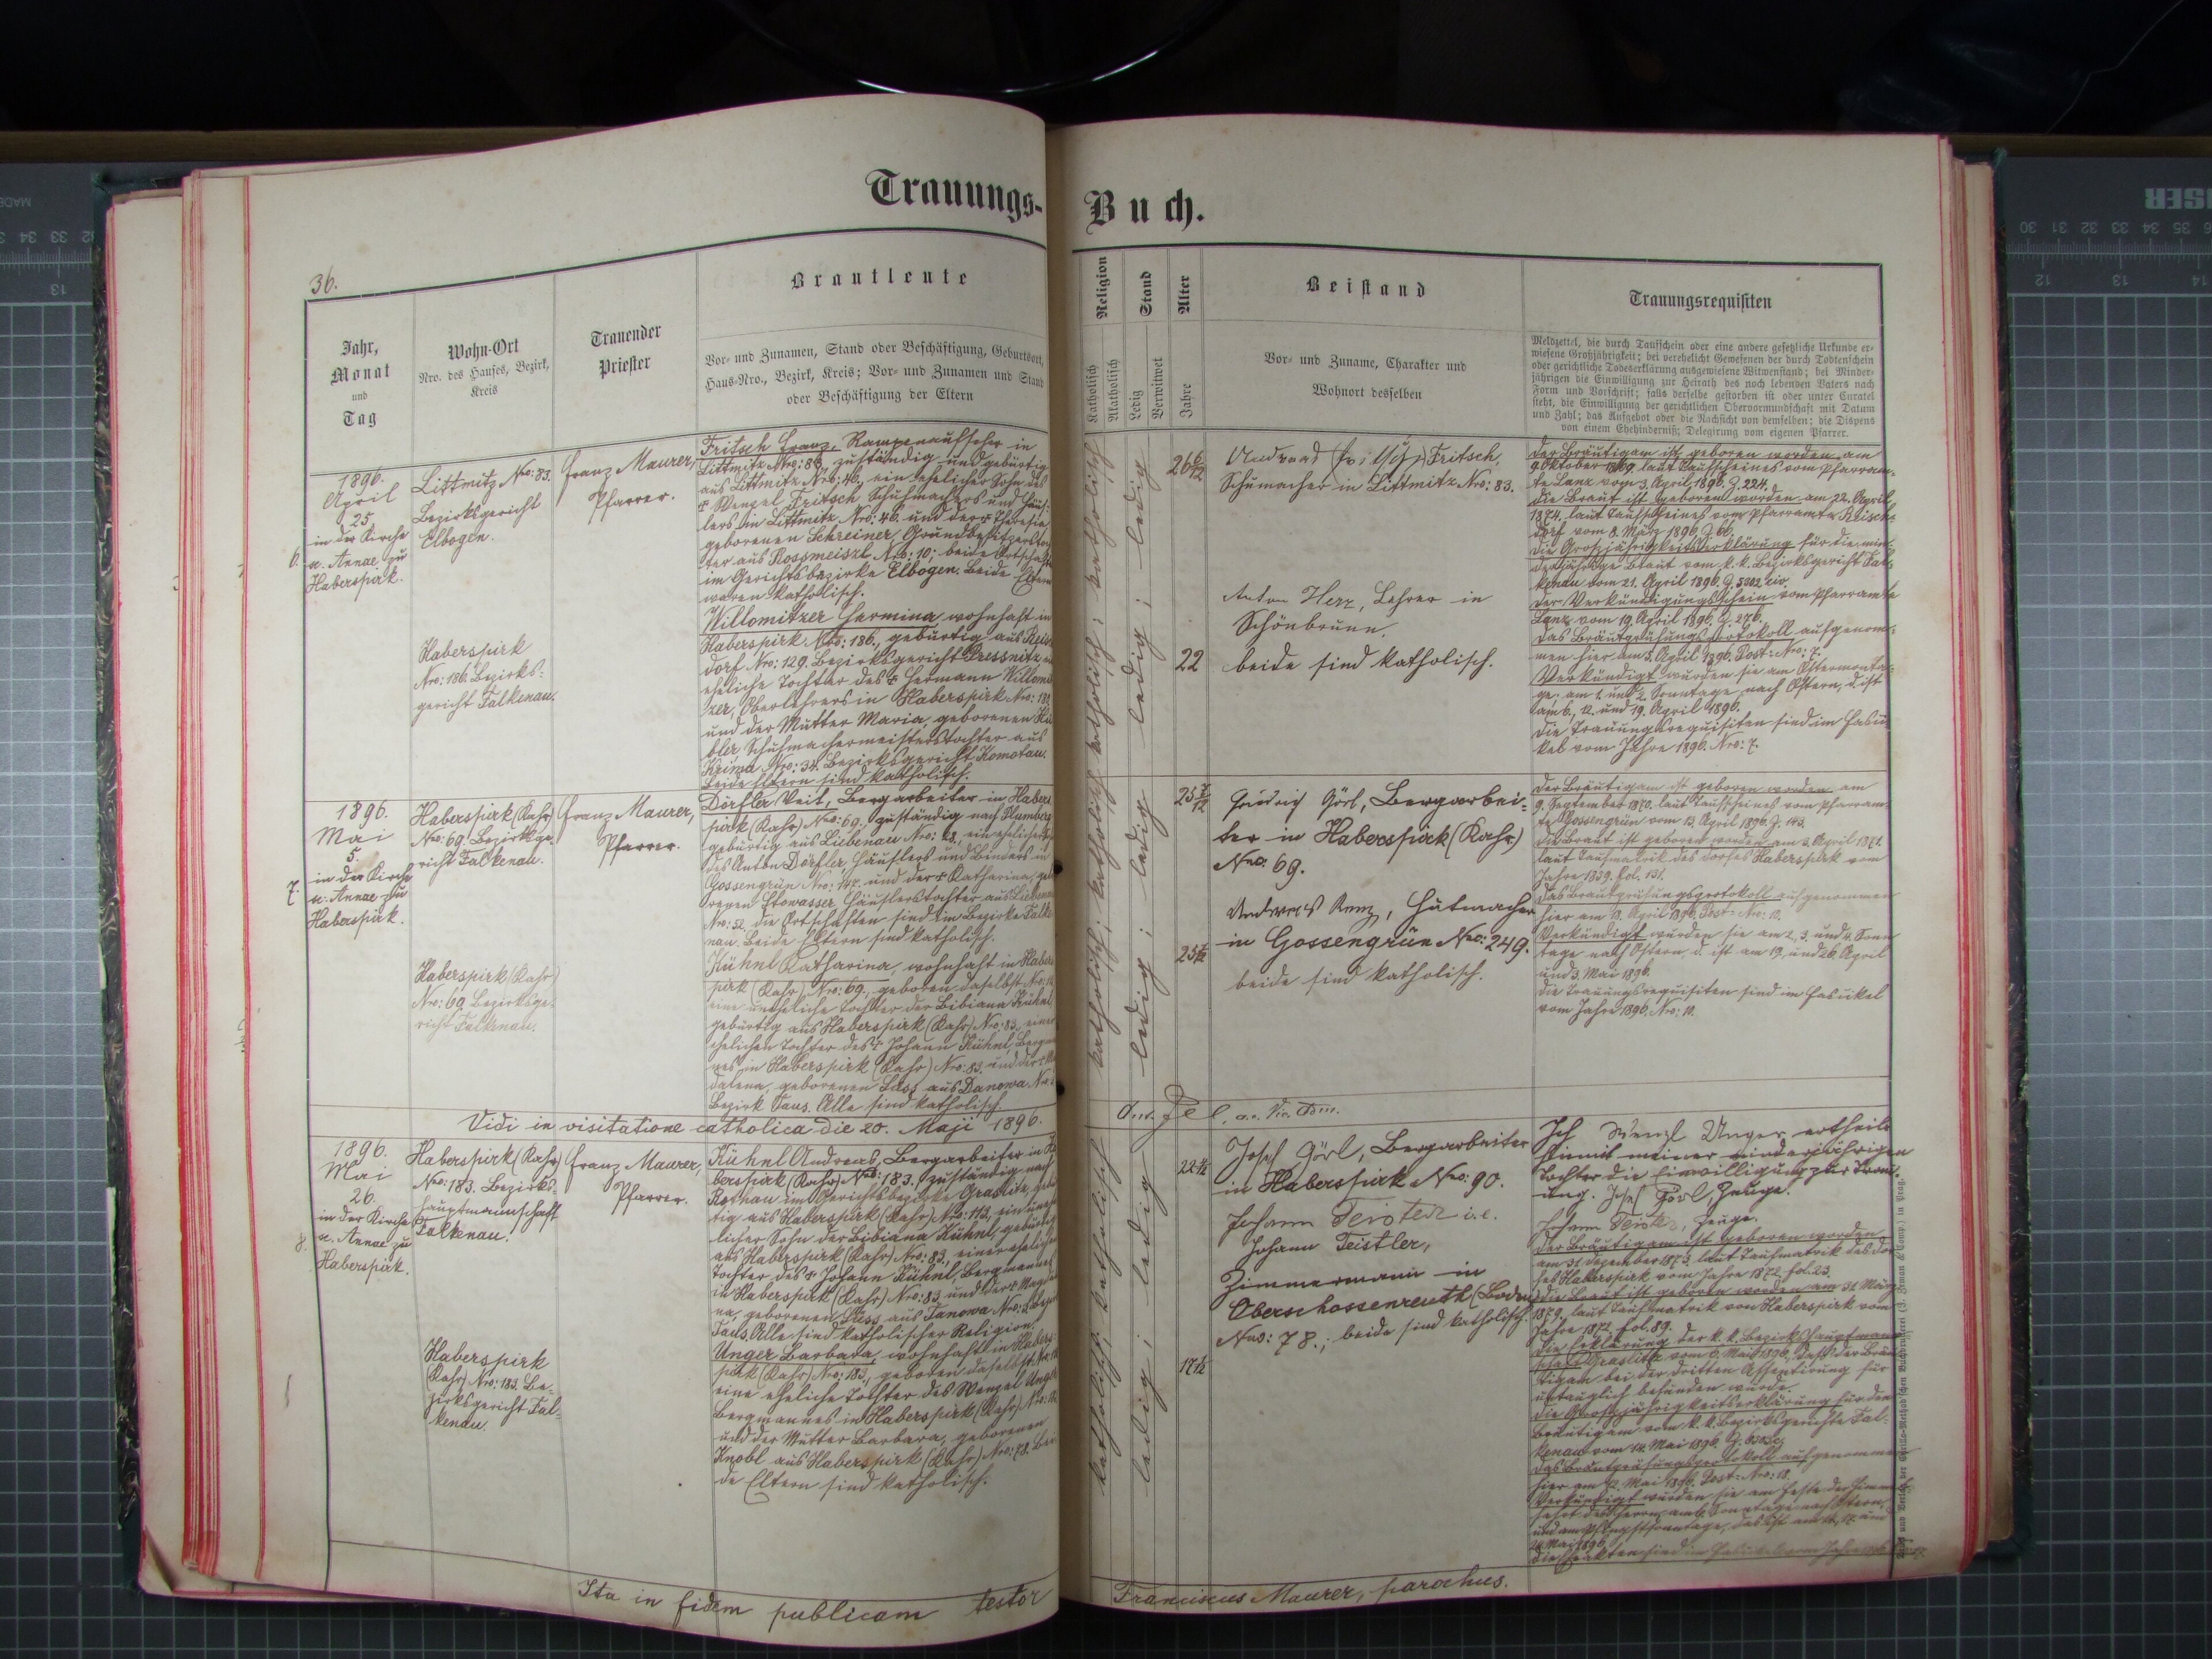 Trauungs-Buch.
36.
Jahr,
Monat
und
Tag
Wohn-Ort
Nro. des Hauses, Bezirk,
Kreis
Trauender
Priester
Brautleute
Vor- und Zunamen, Stand oder Beschäftigung, Geburtsort,
Haus-Nro., Bezirk, Kreis; Vor- und Zunamen und Stand
oder Beschäftigung der Eltern
Religion
Katholisch
Akatholisch
Stand
Ledig
Verwitwet
Alter
Jahre
Beistand
Vor- und Zuname, Charakter und
Wohnort desselben
Trauungsrequisiten
Meldzettel, die durch Taufschein oder eine andere gesetzliche Urkunde er-
wiesene Großjährigkeit; bei verehelicht Gewesenen der durch Todtenschein
oder gerichtliche Todeserklärung ausgewiesene Witwenstand; bei Minder-
jährigen die Einwilligung zur Heirath des noch lebenden Vaters nach
Form und Vorschrift; falls derselbe gestorben ist oder unter Curatel
steht, die Einwilligung der gerichtlichen Obervormundschaft mit Datum
und Zahl; das Aufgebot oder die Nachsicht von demselben; die Dispens
von einem Ehehinderniß; Delegirung vom eigenen Pfarrer.
6.
1896.
April
25
in der Kirche
u. Annae zu
Haberspirk.
Littmitz Nro: 83.
Bezirksgericht
Elbogen.
Haberspirk
Nro: 186. Bezirks-
gericht Falkenau.
Franz Maurer,
Pfarrer.
Fritsch Franz, Rampenaufseher in
Littmitz Nro: 83, zuständig und gebürtig
aus Littmitz Nro: 46, ein ehelicher Sohn des
† Wenzel Fritsch Schuhmachers und Häus-
lers in Littmitz Nro: 46. und der † Theresia
geborenen Schreiner, Grundbesitzerstoch-
ter aus Rossmeiszl Nro: 10: beide Ortschaften
im Gerichtsbezirke Elbogen. Beide Eltern
waren katholisch.
Willomitzer Hermina wohnhaft in
Haberspirk Nro: 186., gebürtig aus Reisch
dorf Nro: 129. Bezirksgericht Pressnitz,
eheliche Tochter des † Hermann Willomit
zer, Oberlehrers in Haberspirk Nro:
und der Mutter Maria, geborenen
bler Schuhmachermeisterstochter aus
Krima Nro: 34. Bezirksgericht Komotau.
Beide Eltern sind katholisch.
katholisch; katholisch
ledig; ledig
26 6/12
22
Fritsch,
Schumacher in Littmitz Nro: 83.
Anton Herz, Lehrer in
Schönbrunn.
beide sind katholisch.
Der Bräutigam ist geboren worden am
9. Oktober 1869. laut Taufscheines vom Pfarram-
te Lanz vom 3. April 1896. Z. 224.
Die Braut ist geboren worden am 22. April
1874. laut Taufscheines vom Pfarramte Reisch-
dorf vom 8. März 1896. Z. 66.
Die Groszjährigkeitserklärung für die min-
derjährige Braut vom k. k. Bezirksgericht Fal-
kenau vom 21. April 1896. Z. 3002 civ.
Der Verkündigungsschein vom Pfarramte
Lanz vom 19. April 1896. Z. 276.
Das Brautprüfungsprotokoll aufgenom-
men hier am 5. April 1896. Post-Nro: 7.
Verkündigt wurden sie am Ostermonta-
ge. am 1. und 2. Sonntage nach Ostern, d. ist
am 6. 12. und 19. April 1896.
Die Trauungsrequisiten sind im Faszi-
kel vom Jahre 1896. Nro: 7.
7.
1896.
Mai
5.
in der Kirche
u. Annae zu
Haberspirk.
Haberspirk (Rahr)
Nro: 69. Bezirksge-
richt Falkenau.
Haberspirk (Rahr)
Nro: 69 Bezirksge-
richt Falkenau.
Franz Maurer,
Pfarrer.
Dörfler Veit, Bergarbeiter in Habers
pirk (Rahr) Nro: 69. zuständig nach Plumberg
gebürtig aus Liebenau Nro: ein ehelicher
des Anton Dörfler Häuslers und Binders in
Gossengrün Nro: 147. und der † Katharina, gebo
renen Stowasser Häuslerstochter aus Liebenau
Nro: 52. die Ortschaften sind im Bezirke Falke
nau. Beide Eltern sind katholisch.
Kühnl Katharina, wohnhaft in Habers
pirk (Rahr) Nro: 69., geboren daselbst
eine uneheliche Tochter der Bibiana Kühnl
gebürtig aus Haberspirk (Rahr) Nro: 83. einer
ehelichen Tochter des † Johann Kühnl, Bergman
nes in Haberspirk (Rahr) Nro: 83. und der †
dalena, geborenen Lass aus Danowa
Bezirk Taus. Alle sind katholisch
katholisch; katholisch
ledig; ledig
25 7/12
Friedrich Görl, Bergarbei-
ter in Haberspirk (Rahr)
Nro: 69.
Andreas Renz, Hutmacher
in Gossengrün Nro: 249.
beide sind katholisch.
Der Bräutigam ist geboren worden am
9. September 1870. laut Taufscheines vom Pfarram-
te Gossengrün vom 13. April 1896. Z. 143.
Die Braut ist geboren worden am 3. April 1871.
laut Taufmatrik des Dorfes Haberspirk vom
Jahre 1839. fol. 131.
Das Brautprüfungsprotokoll aufgenommen
hier am 13. April 1896. Post-Nro: 10.
Verkündigt wurden sie am 2. 3. und 4. Sonn
tage nach Ostern, d. ist am 19. und 26. April
und 3. Mai 1896.
Die Trauungsrequisiten sind im Faszikel
vom Jahre 1896. Nro: 10.
Vidi in visitatione catholica die 20. Maji 1896.
8.
1896.
Mai
26.
in der Kirche
u. Annae zu
Haberspirk.
Haberspirk (Rahr)
Nro: 183. Bezirks-
hauptmannschaft
Falkenau.
Haberspirk
(Rahr) Nro: 183. Be-
zirksgericht Fal-
kenau.
Franz Maurer,
Pfarrer.
Kühnl Andreas, Bergarbeiter in Ha
berspirk (Rahr) Nro: 183. zuständig nach
Rothau im Gerichtsbezirke Graslitz, gebür
tig aus Haberspirk (Rahr) Nro: 113, ein unehe
licher Sohn der Bibiana Kühnl, gebürtig
aus Haberspirk (Rahr) Nro: 83., einer ehelichen
Tochter des † Johann Kühnl, Bergmannes
in Haberspirk (Rahr) Nro: 83. und der † Magdale
na, geborenen Press aus Tanowa
Taus. Alle sind katholischer Religion.
Unger Barbara, wohnhaft in Habers-
pirk (Rahr) Nro: 183., geboren daselbst
eine eheliche Tochter des Wenzel Unger
Bergmannes in Haberspirk (Rahr)
und der Mutter Barbara, geborenen
Knobl aus Haberspirk (Rahr) Nro: 78. Bei
de Eltern sind katholisch.
katholisch; katholisch
ledig; ledig
Josef Görl, Bergarbeiter
in Haberspirk Nro: 90.
Johann Teistler i.e.
Johann Teistler,
Zimmermann in
Oberschossenreuth (Boden)
Nro: 78.; beide sind katholisch.
Ich Wenzl Unger ertheile
hiemit meiner minderjährigen
Tochter die Einwilligung zur Trau-
ung. Josef Görl, Zeuge.
Johann Teistler, Zeuge.
Der Bräutigam ist geboren worden
am 31. Dezember 1873. laut Taufmatrik des Dor-
fes Haberspirk vom Jahre 1872. fol. 23.
Die Braut ist geboren worden am 31. März
1879. laut Taufmatrik von Haberspirk vom
Jahre 1872. fol. 89.
Die Erklärung der k. k. Bezirkshauptmann
schaft Graslitz vom 6. Mai 1896., dasz der Bräu
tigam bei der dritten Assentirung für
untauglich befunden wurde.
Die Groszjährigkeitserklärung für den
Bräutigam vom k. k. Bezirksgerichte Fal-
kenau vom 14. Mai 1896.
Das Brautprüfungsprotokoll aufgenommen
hier am 12. Mai 1896. Post-Nro: 18.
Verkündigt wurden sie am Feste der Himmel
fahrt des Herrn, am 6. Sonntage nach Ostern,
und am Pfingstsonntage, das ist am 14. 17. und
24. Mai 1896.
Ita in fidem publicam testor
Franciscus Maurer, parochus.